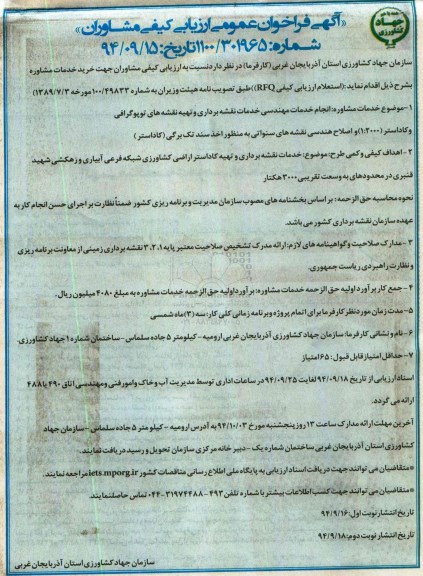 جهاد کشاورزی
«آگهی فراخوان عمومی ارزیابی کیفی مشاوران»
شماره: ۱۱۰۰/۳۰۱۹۶۵ تاریخ: ۹۴/۰۹/۱۵
سازمان جهاد کشاورزی استان آذربایجان غربی (کارفرما) در نظر دارد نسبت به ارزیابی کیفی مشاوران جهت خرید خدمات مشاوره
بشرح ذیل اقدام نماید :(استعلام ارزیابی کیفی RFQ)) طبق تصویب نامه هیئت وزیران به شماره ۱۰۰/۴۹۸۳۳ مورخه ۱۳۸۹/۷/۳)
۱- موضوع خدمات مشاوره: انجام خدمات مهندسی خدمات نقشه برداری و تهیه نقشه های توپوگرافی
وکاداستر (۱:۲۰۰۰) و اصلاح هندسی نقشه های سنواتی به منظور اخذ سند تک برگی (کاداستر)
۲- اهداف کیفی و کمی طرح: موضوع: خدمات نقشه برداری و تهیه کاداستر اراضی کشاورزی شبکه فرعی آبیاری و زهکشی شهید
قنبری در محدودهای به وسعت تقریبی ۳۰۰۰ هکتار
نحوه محاسبه حق الزحمه: بر اساس بخشنامه های مصوب سازمان مدیریت و برنامه ریزی کشور ضمناً نظارت بر اجرای حسن انجام کار به
عهده سازمان نقشه برداری کشور می باشد.
۳- مدارک صلاحیت و گواهینامه های لازم: ارائه مدرک تشخیص صلاحیت معتبر پایه ۱، ۲، ۳ نقشه برداری زمینی از معاونت برنامه ریزی
و نظارت راهبردی ریاست جمهوری.
۴- جمع کل برآورد اولیه حق الزحمه خدمات مشاوره: برآورد اولیه حق الزحمه خدمات مشاوره به مبلغ ۴۰۸۰ میلیون ریال.
۵- مدت زمان مورد نظر کارفرما برای اتمام پروژه و برنامه زمانی کلی کار: سه (۳) ماه شمسی
۶- نام و نشانی کارفرما: سازمان جهاد کشاورزی آذربایجان غربی ارومیه - کیلومتر ۵ جاده سلماس - ساختمان شماره ۱ جهاد کشاورزی.
۷- حداقل امتیاز قابل قبول: ۶۵ امتیاز
اسناد ارزیابی از تاریخ ۹۴/۰۹/۱۸ لغایت ۹۴/۰۹/۲۵ در ساعات اداری توسط مدیریت آب و خاک و امور فنی و مهندسی اتاق ۴۹۰ یا ۴۸۸
ارائه می گردد.
آخرین مهلت ارائه مدارک ساعت ۱۳ روز پنجشنبه مورخ ۹۴/۱۰/۰۳ به آدرس ارومیه - کیلومتر ۵ جاده سلماس - سازمان جهاد
کشاورزی استان آذربایجان غربی ساختمان شماره یک - دبیر خانه مرکزی سازمان تحویل و رسید دریافت نمایند.
*متقاضیان می توانند جهت دریافت اسناد ارزیابی به پایگاه ملی اطلاع رسانی مناقصات کشور iets.mporg.ir مراجعه نمایند.
*متقاضیان می توانند جهت کسب اطلاعات بیشتر با شماره تلفن ۴۹۳-۳۱۹۷۴۴۸۸-۰۴۴ تماس حاصلنمایند.
تاریخ انتشار نوبت اول: ۹۴/۹/۱۶
تاریخ انتشار نوبت دوم: ۹۴/۹/۱۸
سازمان جهاد کشاورزی استان آذربایجان غربی